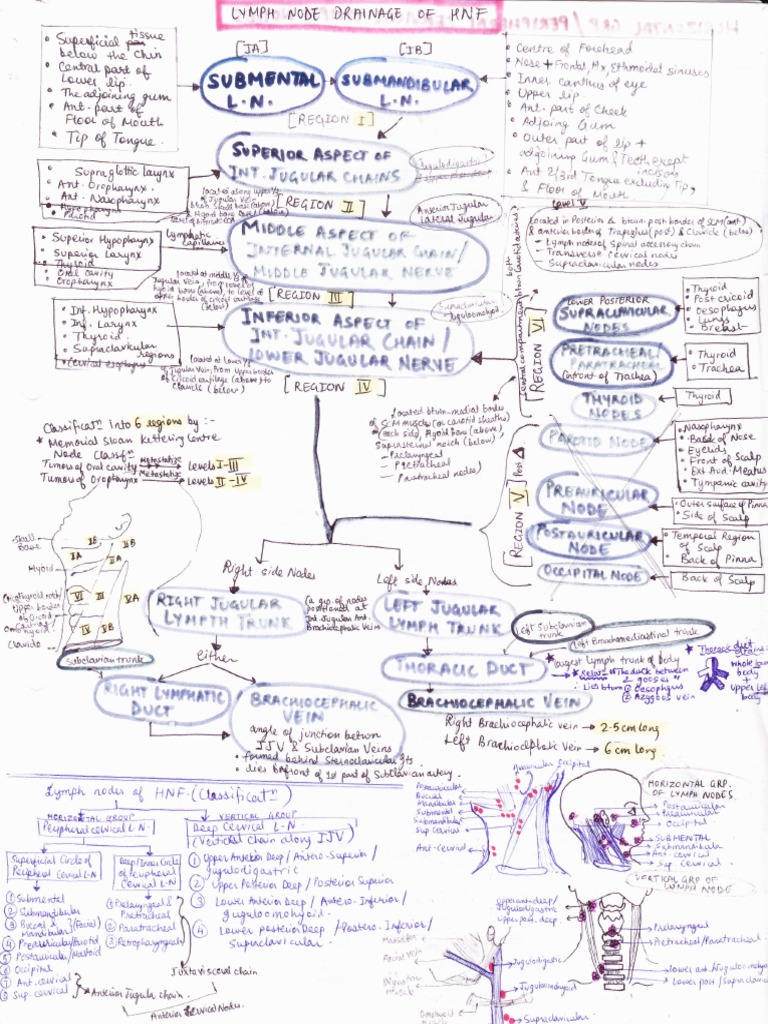 LYMPH NODE DRAINAGE OF HNF
[IA]
[IB]
• Superficial tissue
below the Chin
• Central part of
Lower lip.
• The adjoining gum
• Ant. part of
Floor of Mouth
• Tip of Tongue.
SUBMENTAL
L.N.
SUBMANDIBULAR
L.N.
[REGION I]
• Centre of Forehead
• Nose + Frontal, Mx, Ethmoidal sinuses
• Inner canthus of eye
• Upper lip
• Ant. part of Cheek
• Adjoing Gum
• Outer part of lip +
adjoining Gum & Teeth except
incisors
• Ant 2/3rd Tongue excluding Tip,
& Floor of Mouth
SUPERIOR ASPECT OF
INT. JUGULAR CHAINS
Jugulodigastric
• Supraglottic larynx
• Ant. Oropharynx.
• Ant. Nasopharynx
[REGION II]
Anterior Jugular
Lateral Jugular
Lymphatic
Capillaries
MIDDLE ASPECT OF
INTERNAL JUGULAR CHAIN/
MIDDLE JUGULAR NERVE
• Superior Hypopharynx
• Superior Larynx
• Thyroid
• Oral cavity
• Oropharynx
[REGION III]
INFERIOR ASPECT OF
INT. JUGULAR CHAIN/
LOWER JUGULAR NERVE
• Inf. Hypopharynx
• Inf. Larynx
• Thyroid
• Supraclavicular
regions
• Cervical esophagus
[REGION IV]
Level V
Located in Posterior Δ btwn post border of SCM (ant)
& anterior border of Trapezius (post) & Clavicle (below)
– Lymph nodes of spinal accessory chain
– Transverse cervical nodes
– Supraclavicular nodes
[REGION VI]
LOWER POSTERIOR
SUPRACLAVICULAR
NODES
• Thyroid
• Post cricoid
• Oesophagus
• Lungs
• Breast
PRETRACHEAL/
PARATRACHEAL
(infront of Trachea)
• Thyroid
• Trachea
THYROID
NODES
Thyroid
Located btwn medial borders
of SCM muscles (or carotid sheaths)
on each side, Hyoid bone (above)
Suprasternal notch (below)
– Prelaryngeal
– Pretracheal
– Paratracheal nodes
REGION V
Post Δ
PAROTID NODE
• Nasopharynx
• Back of Nose
• Eyelids
• Front of Scalp
• Ext. Aud. Meatus
• Tympanic cavity
PREAURICULAR
NODE
• Outer surface of Pinna
• Side of Scalp
POSTAURICULAR
NODE
• Temporal Region
of Scalp
• Back of Pinna
OCCIPITAL NODE
Back of Scalp
Classificatn Into 6 regions by :-
* Memorial Sloan Kettering Centre
Node Classfn
Tumors of Oral cavity Metastatise Levels I-III
Tumors of Oropharynx Metastatise Levels II-IV
Skull
Base
Hyoid
Clavicle
IB
IA
IIA
IIB
III
VI
VA
IV
VB
Right side Nodes
Left side Nodes
RIGHT JUGULAR
LYMPH TRUNK
(a grp. of nodes
positioned at
Int. Jugular Ant.
Brachiocephalic Vein)
LEFT JUGULAR
LYMPH TRUNK
Left Subclavian
trunk
Left Bronchomediastinal trunk
Subclavian trunk
either
THORACIC DUCT
* Largest lymph trunk of body
* The duck between
2 gooses"
: Lies btwn ① Oesophagus
② Azygous vein
* Thoracic duct
drains:-
whole lower
body
+
upper left
body
RIGHT LYMPHATIC
DUCT
BRACHIOCEPHALIC
VEIN
angle of junction between
IJV & Subclavian Veins
• formed behind Sternoclavicular Jts
• lies infront of 1st part of Subclavian artery.
BRACHIOCEPHALIC VEIN
Right Brachiocephalic vein → 2.5cm long
Left Brachiocephalic Vein → 6cm long.
Lymph nodes of HNF. (Classificatn)
HORIZONTAL GROUP
Peripheral Cervical L.N.
VERTICAL GROUP
Deep Cervical L.N
(Vertical Chain along IJV)
Superficial Circle of
Peripheral Cervical L.N
Deep/Inner Circle
of Peripheral
Cervical L.N
① Submental
② Submandibular
③ Buccal &
Mandibular (Facial)
④ Preauricular/Parotid
⑤ Postauricular/Mastoid
⑥ Occipital
⑦ Ant. cervical
⑧ Sup. cervical
Anterior Jugular chain.
① Prelaryngeal &
Pretracheal
② Paratracheal
③ Retropharyngeal
Juxtavisceral chain
Anterior Cervical Nodes.
① Upper Anterior Deep / Antero-Superior /
jugulodigastric
② Upper Posterior Deep / Posterior Superior
③ Lower Anterior Deep / Antero-Inferior /
juguloomohyoid.
④ Lower posterior Deep / Postero-Inferior /
Supraclavicular.
Occipital
Buccal
Mandibular
Submental
Submandibular
Sup Cervical
Ant. Cervical
HORIZONTAL GRP.
OF LYMPH NODES
Postauricular
SUBMENTAL
Submandibular
Ant. cervical
Sup. Cervical
VERTICAL GRP OF
LYMPH NODE
Upper ant. deep /
Jugulodigastric
Upper post. deep
Prelaryngeal
Pretracheal/Paratracheal
Lower ant./Juguloomohyoid
Lower post/Supraclavicular
Facial vein
Jugulodigastric
Juguloomohyoid
Supraclavicular